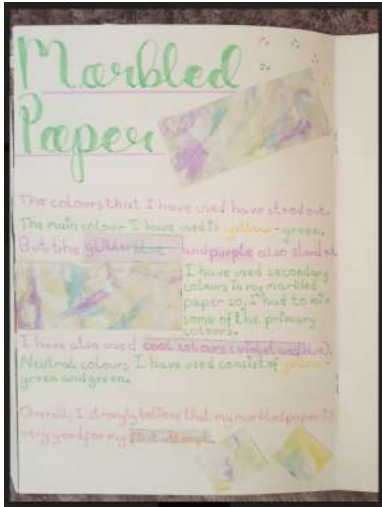 Marbled
Paper
The colours that I have used have stood out.
The main colour I have used is yellow-green.
But the glitter blue and purple also stand out.
I have used secondary
colours in my marbled
paper so, I had to mix
some of the primary
colours.
I have also used cool colours (violet and blue).
Neutral colours I have used consist of yellow-
green and green.
Overall, I strongly believe that my marbled paper is
very good for my first attempt.